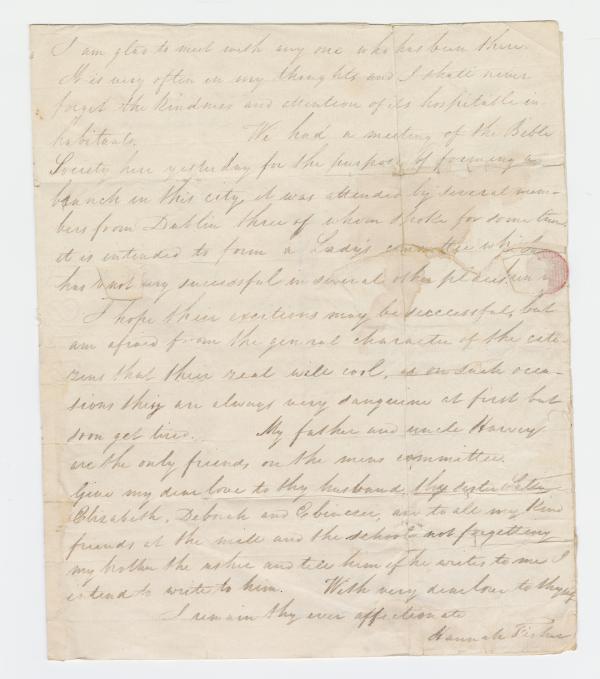 I am glad to meet with any one who has been there.
It is very often in my thoughts and I shall never
forget the kindness and attention of its hospitable in-
habitants. We had a meeting of the Bible
Society here yesterday for the purpose of forming a
branch in this city, it was attended by several mem-
bers from Dublin three of whom spoke for some time.
it is intended to form a Lady's committee which
has very successful in several other places
I hope their exertions may be successful, but
am afraid from the general character of the citi-
zens that their zeal will cool, as on such occa-
sions they are always very sanguine at first but
soon get tired. My father and uncle Harvey
are the only friends on the mens committee.
Give my dear love to thy husband, thy sister
Elizabeth, Deborah and Ebenezer, and to all my kind
friends at the mill and the school not forgetting
my brother the usher and tell him if he writes to me I
intend to write to him. With very dear love to thyself
I remain thy ever affectionate
Hannah Fisher